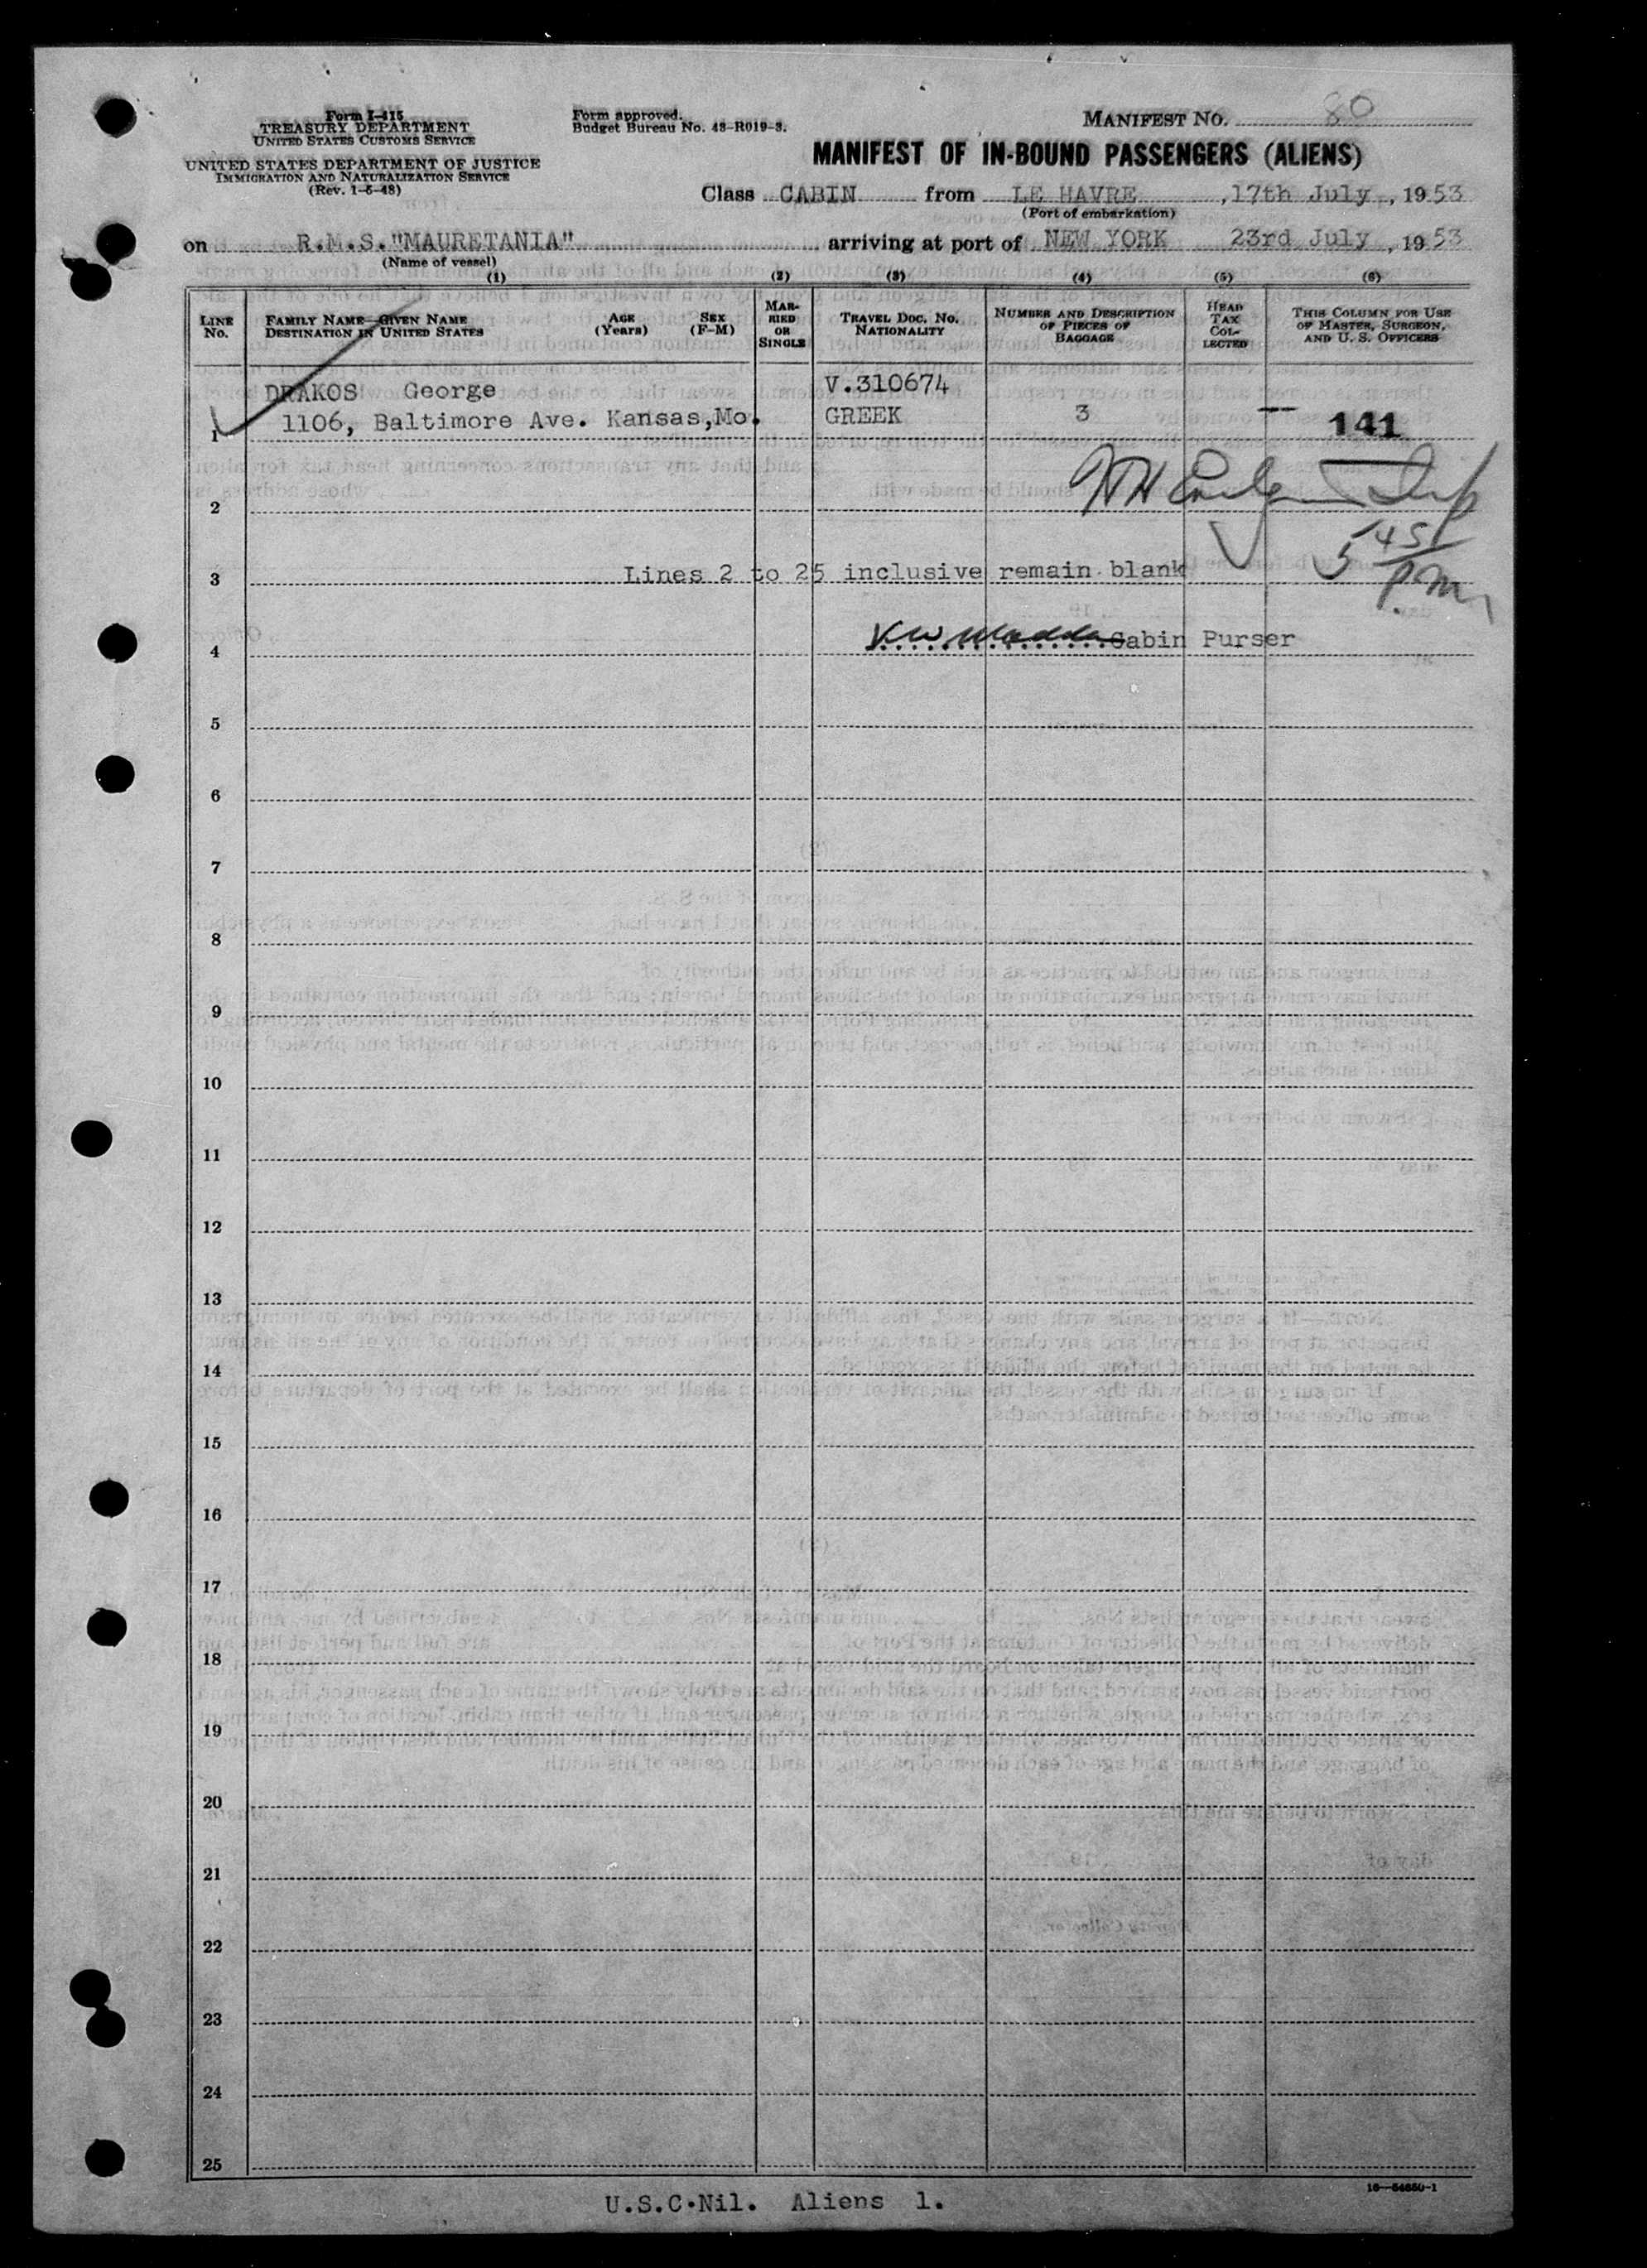 Form I-415
TREASURY DEPARTMENT
UNITED STATES CUSTOMS SERVICE
UNITED STATES DEPARTMENT OF JUSTICE
IMMIGRATION AND NATURALIZATION SERVICE
(Rev. 1-5-48)
Form approved.
Budget Bureau No. 43-R019-3.
MANIFEST NO. 80
MANIFEST OF IN-BOUND PASSENGERS (ALIENS)
Class CABIN from LE HAVRE, 17th July, 1953
(Port of embarkation)
on R.M.S."MAURETANIA" arriving at port of NEW YORK 23rd July, 1953
(Name of vessel)
(1) (2) (3) (4) (5) (6)
LINE No.
FAMILY NAME—GIVEN NAME
DESTINATION IN UNITED STATES
AGE (Years)
SEX (F-M)
MARRIED OR SINGLE
TRAVEL DOC. NO.
NATIONALITY
NUMBER AND DESCRIPTION OF PIECES OF BAGGAGE
HEAD TAX COLLECTED
THIS COLUMN FOR USE OF MASTER, SURGEON, AND U. S. OFFICERS
DRAKOS George V.310674
1 1106, Baltimore Ave. Kansas,Mo. GREEK 3 — 141
2
5 45 P.m.
3 Lines 2 to 25 inclusive remain blank
4 Cabin Purser
5
6
7
8
9
10
11
12
13
14
15
16
17
18
19
20
21
22
23
24
25
16—54650-1
U.S.C.Nil. Aliens 1.